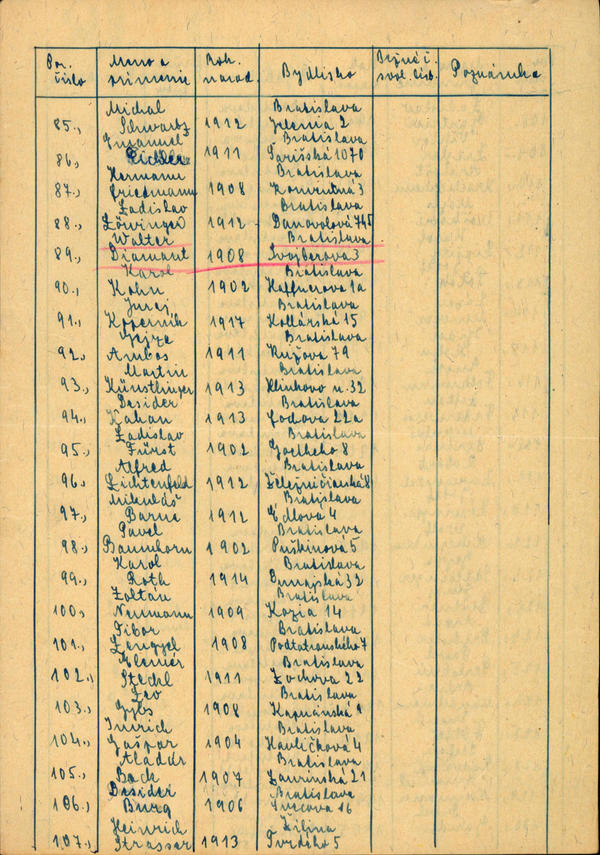 Por. číslo Meno a priezvisko Rok narod. Bydlisko Poznámka
Michal Bratislava
85., Schwartz 1912 Jelenia 2
Emanuel Bratislava
86., Eichler 1911 Šarišská 1070
Hermann Bratislava
87., Friedmann 1908 Konventná 3
Ladislav
88., Löwinger 1912
Walter Bratislava
89., Diamant 1908 Svajberova 3
Karol Bratislava
90., Kohn 1902 Haffnerova 1a
Juraj Bratislava
91., Kopernik 1917 Kollárská 15
Gejza Bratislava
92., Ambos 1911 Kujžova 79
Martin Bratislava
93., Künstlinger 1913 Klinkovo u. 32
Desider Bratislava
94., Kahan 1913 Lodova 22a
Ladislav Bratislava
95., Fürst 1902 Goetheho 8
Alfred Bratislava
96., Lichtenfeld 1912 Železničiarská 8
Mikuláš Bratislava
97., Barna 1912 Edlova 4
Pavel Bratislava
98., Baumhorn 1902 Puškinova 5
Karol Bratislava
99., Roth 1914 Dunajská 32
Zoltán Bratislava
100., Neumann 1909 Kozia 14
Tibor Bratislava
101., Lengyel 1908 Podtatranského 7
Elemér Bratislava
102., Steckl 1911 Zochova 22
Leo Bratislava
103., 1908
Imrich Bratislava
104., Gašpar 1904 Havlíčkova 4
Aladár Bratislava
105., Bach 1907 Laurinská 21
Desider Bratislava
106., Burg 1906 Svecova 16
Heinrich Žilina
107., Strasser 1913 Tvrdého 5